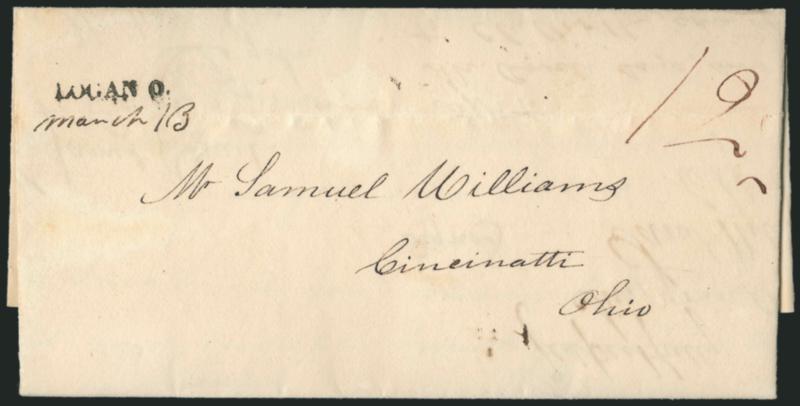 LOGAN O.
March 13
12
Mr Samuel Williams
Cincinatti
Ohio